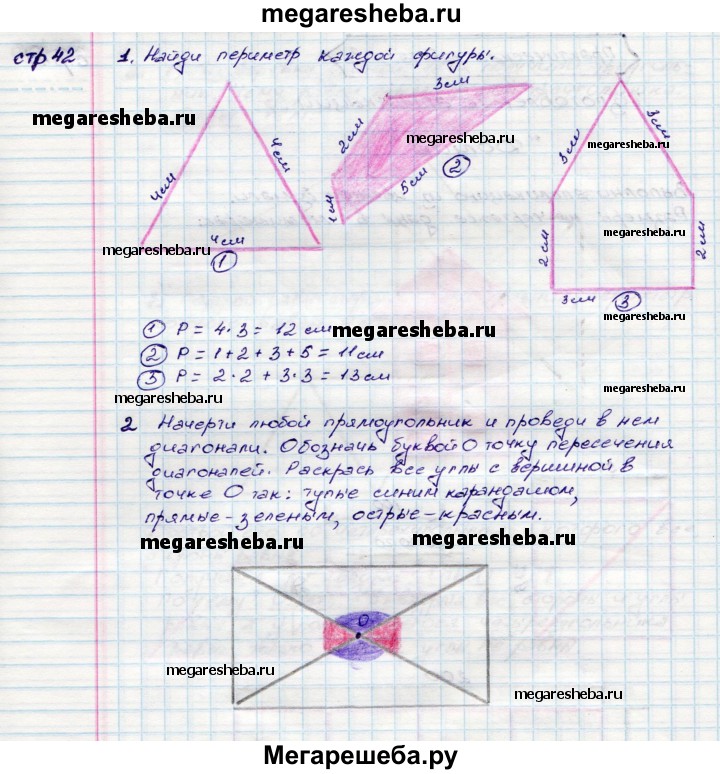 megaresheba.ru
стр 42
1. Найди периметр каждой фигуры.
megaresheba.ru
4см
4см
4см
megaresheba.ru
1
3см
2см
megaresheba.ru
5см
1см
2
3см
3см
megaresheba.ru
2см
2см
megaresheba.ru
3см
3
megaresheba.ru
1 P = 4·3 = 12 см
megaresheba.ru
2 P = 1+2+3+5 = 11см
3 P = 2·2 + 3·3 = 13см
megaresheba.ru
megaresheba.ru
2 Начерти любой прямоугольник и проведи в нем
диагонали. Обозначь буквой О точку пересечения
диагоналей. Раскрась все углы с вершиной в
точке О так: тупые синим карандашом,
прямые-зеленым, острые-красным.
megaresheba.ru
megaresheba.ru
О
megaresheba.ru
megaresheba.ru
Мегарешеба.ру